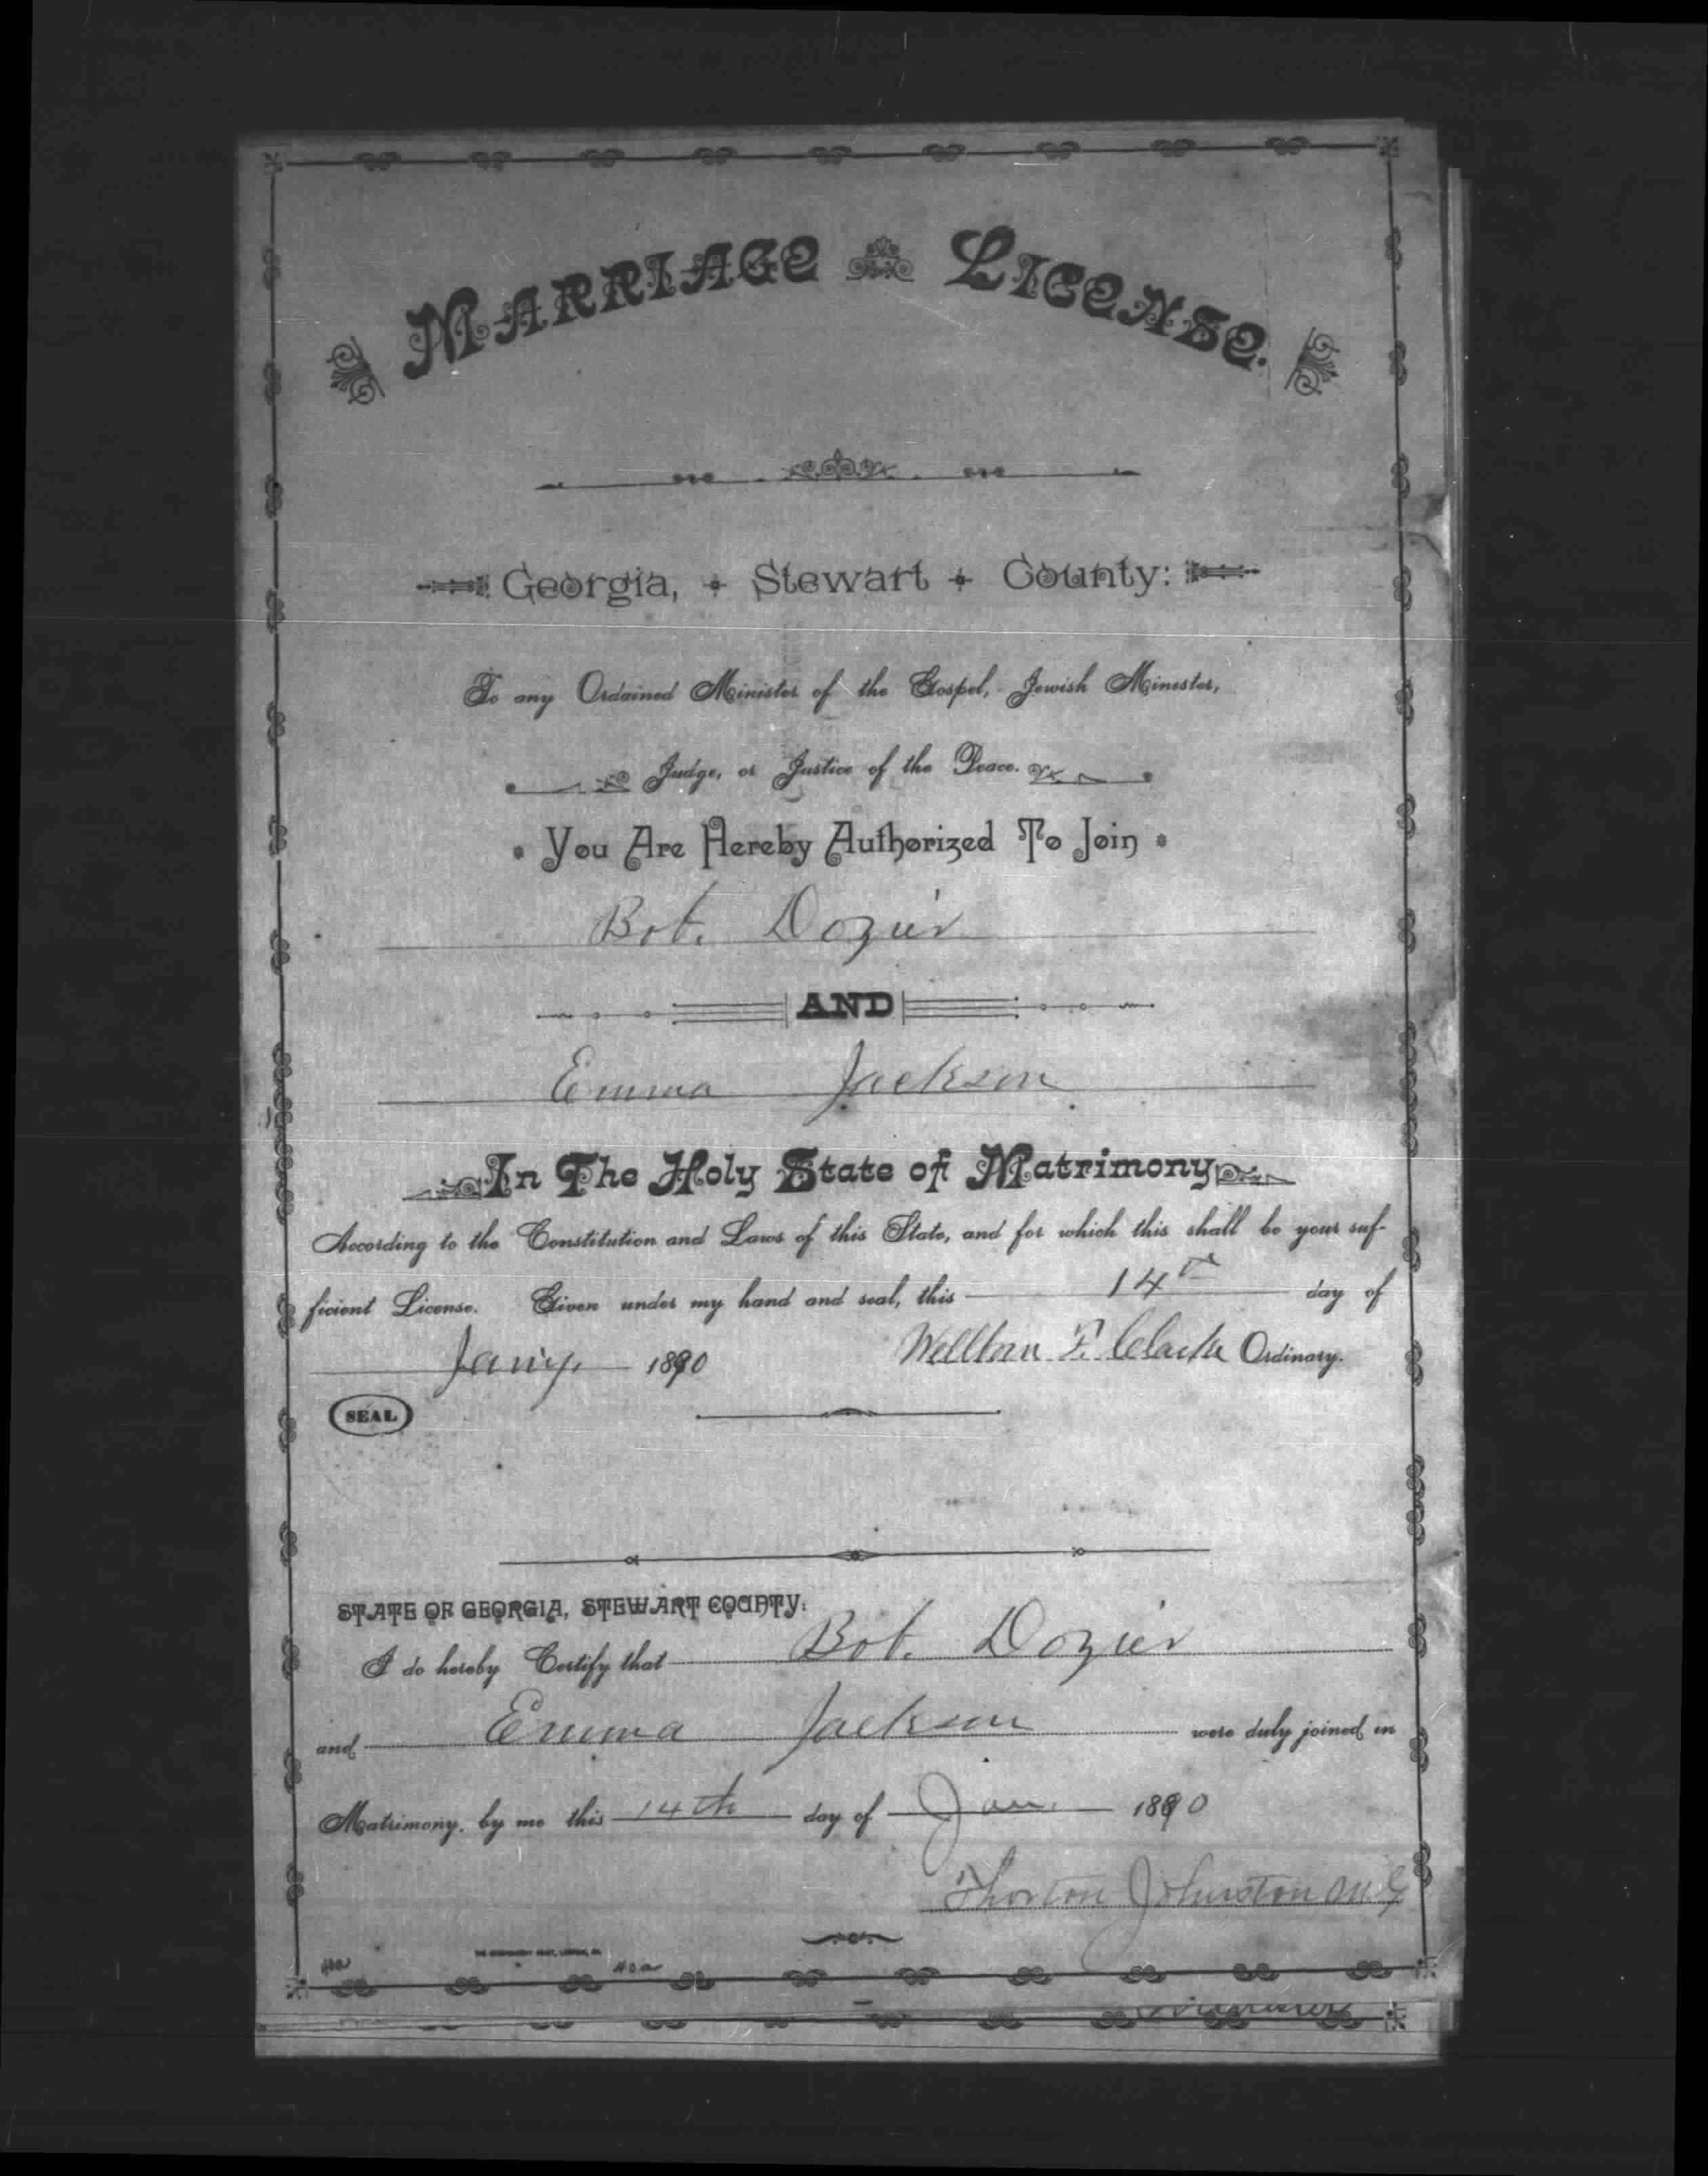 MARRIAGE LICENSE.
Georgia, Stewart County:
To any Ordained Minister of the Gospel, Jewish Minester,
Judge, or Justice of the Peace.
You Are Hereby Authorized To Join
Bob. Dozier
AND
Emma Jackson
In The Holy State of Matrimony
According to the Constitution and Laws of this State, and for which this shall be your suf-
ficient License. Given under my hand and seal, this 14th day of
Jany. 1890 Wellborn F. Clarke Ordinary.
SEAL
STATE OF GEORGIA, STEWART COUNTY:
I do hereby Certify that Bob. Dozier
and Emma Jackson were duly joined in
Matrimony, by me this 14th day of Jan. 1890
Thorton Johnston M.G